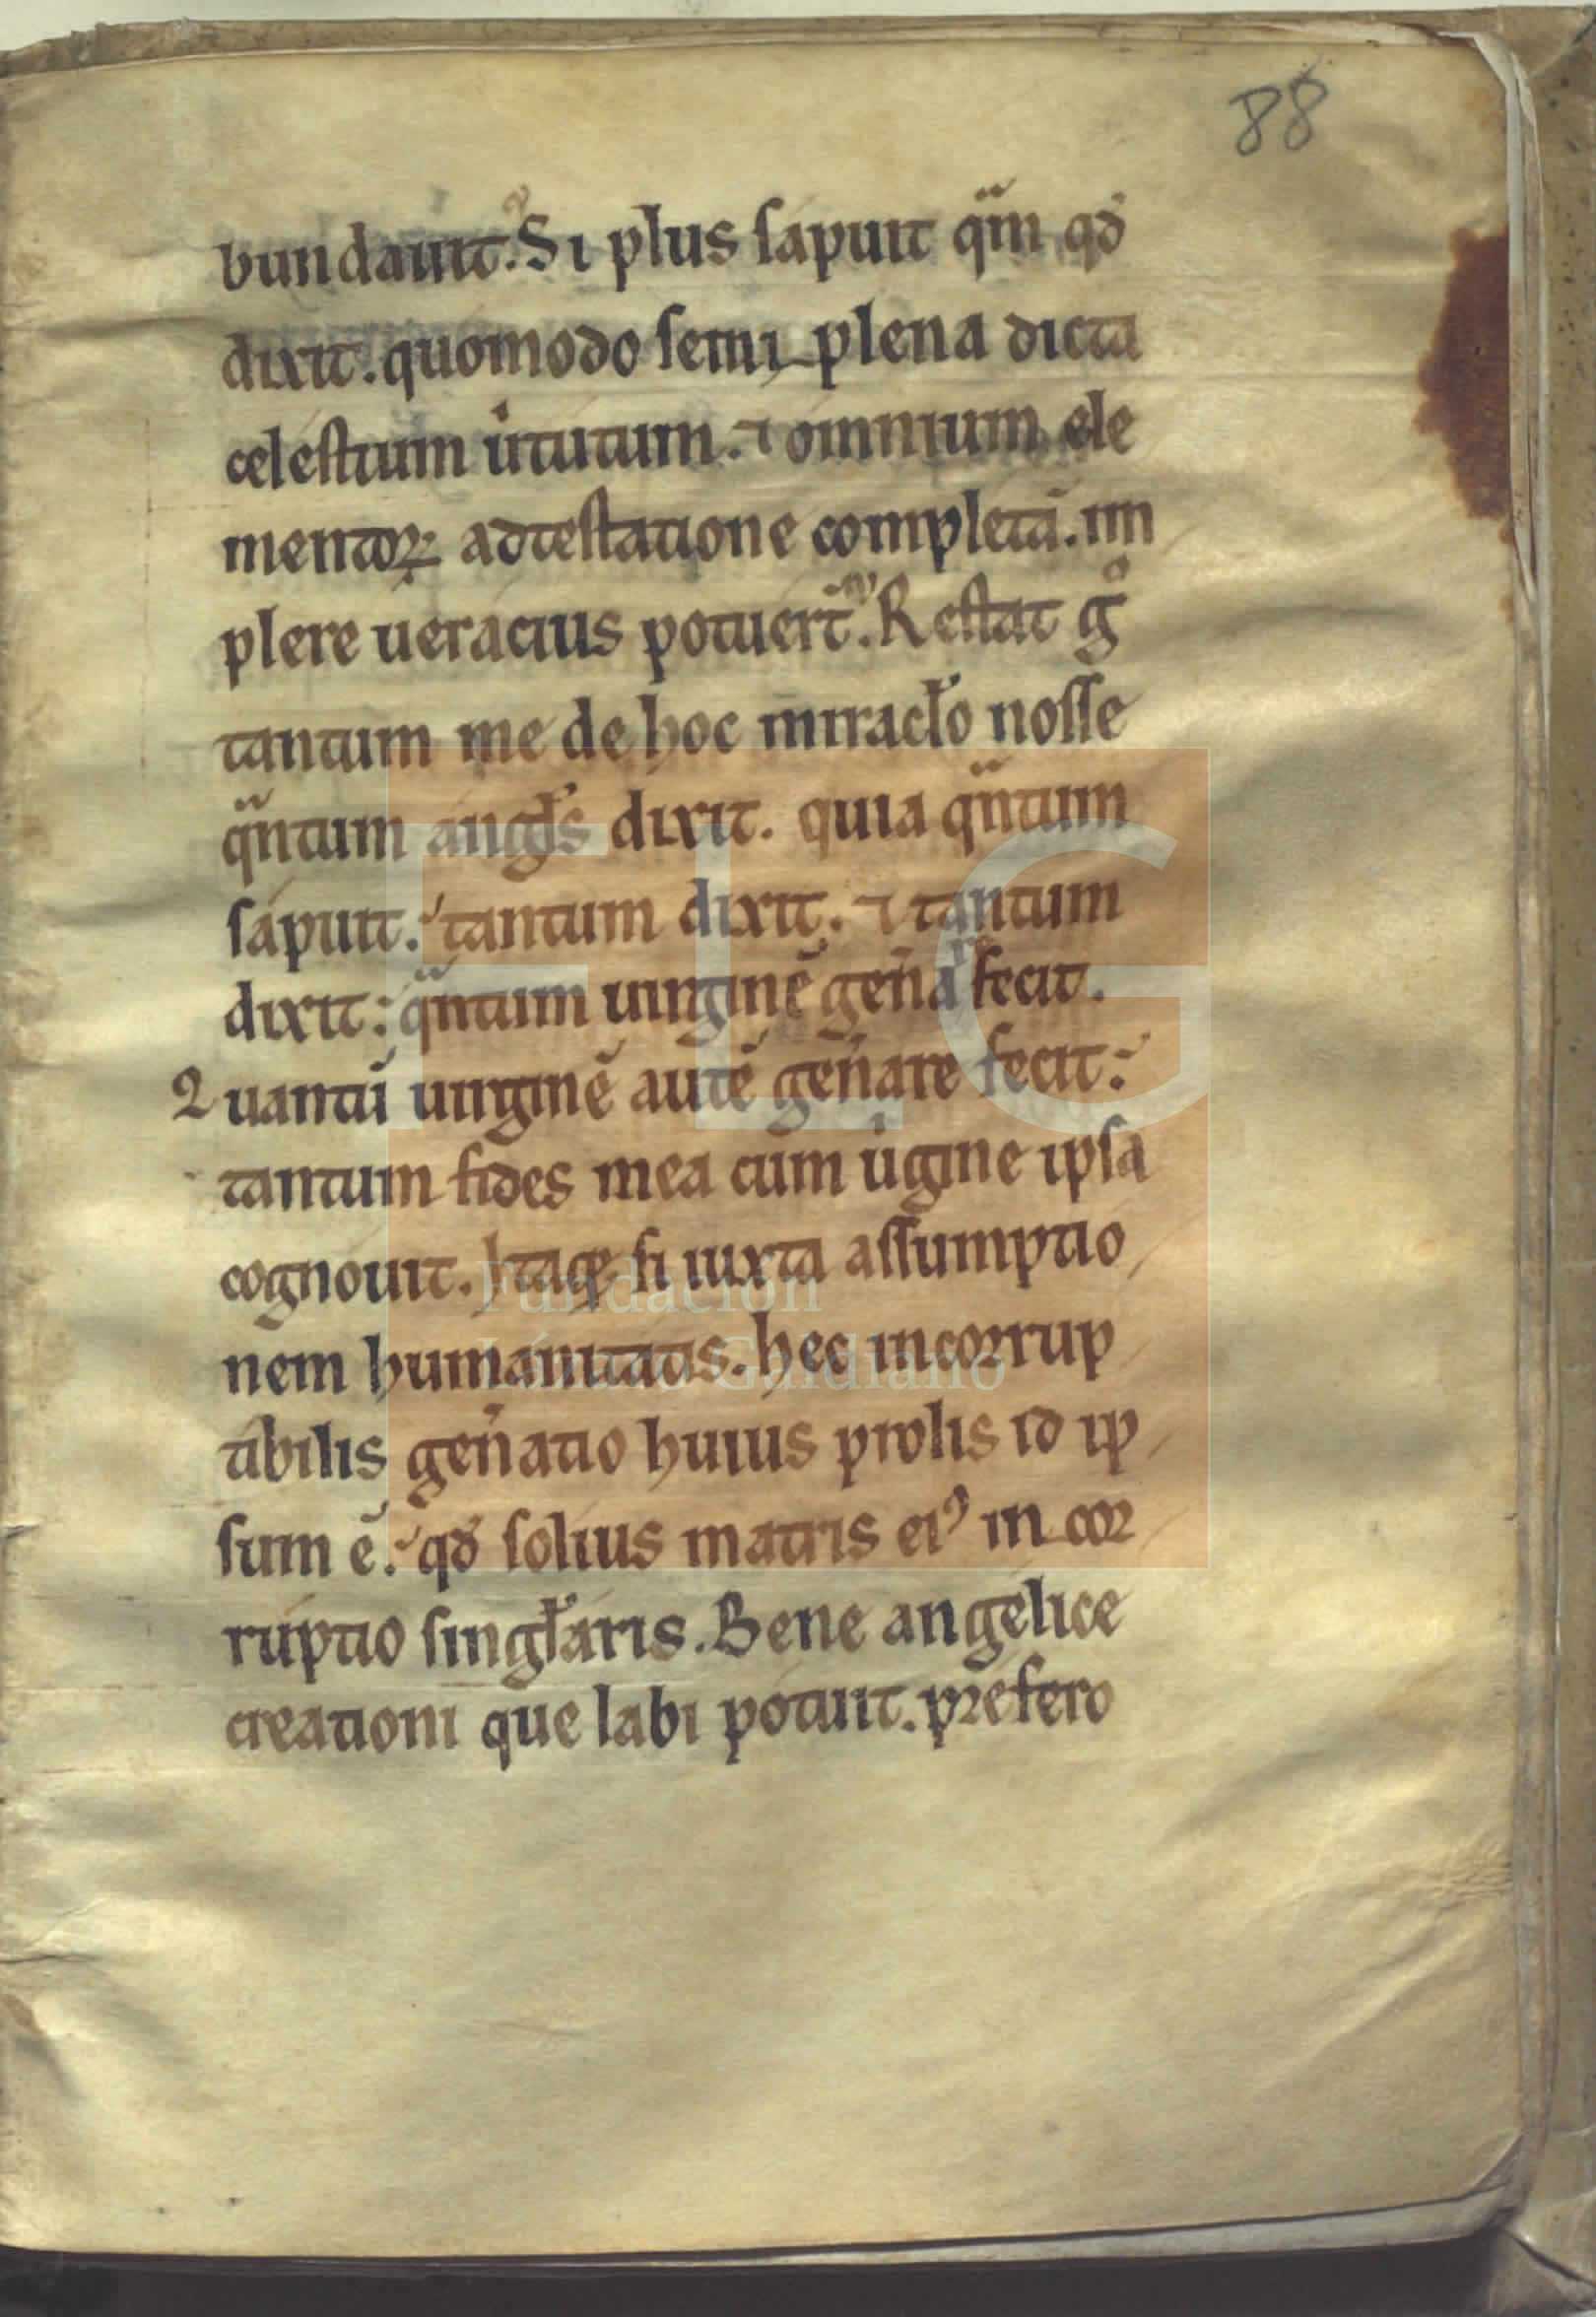 88
bundauit. Si plus sapuit qᵃm qđ
dixit. quomodo semi plena dicta
celestium uͥtutum. ⁊ omnium ele
mentoꝝ adtestatione completā. im
plere ueracius potuert̄. Restat gͦ
tantum me de hoc miracl̓o nosse
qᵃntum angl̓s dixit. quia qᵃntum
sapuit. tantum dixit. ⁊ tantum
dixit: qᵃntum uirginē gen̄a fecit.
Quantū uirginē autē gen̄are fecit:
tantum fides mea cum uͥgine ipsa
cognouit. Itaqꝫ si iuxta assumptio
nem humanitatis. hec incorrup
tibilis gen̄atio huius prolis id ip
sum ē. qđ solius matris eiꝰ in cor
ruptio singl̓aris. Bene angelice
creationi que labi potuit. prefero
FLG
Fundación
Lázaro Galdiano